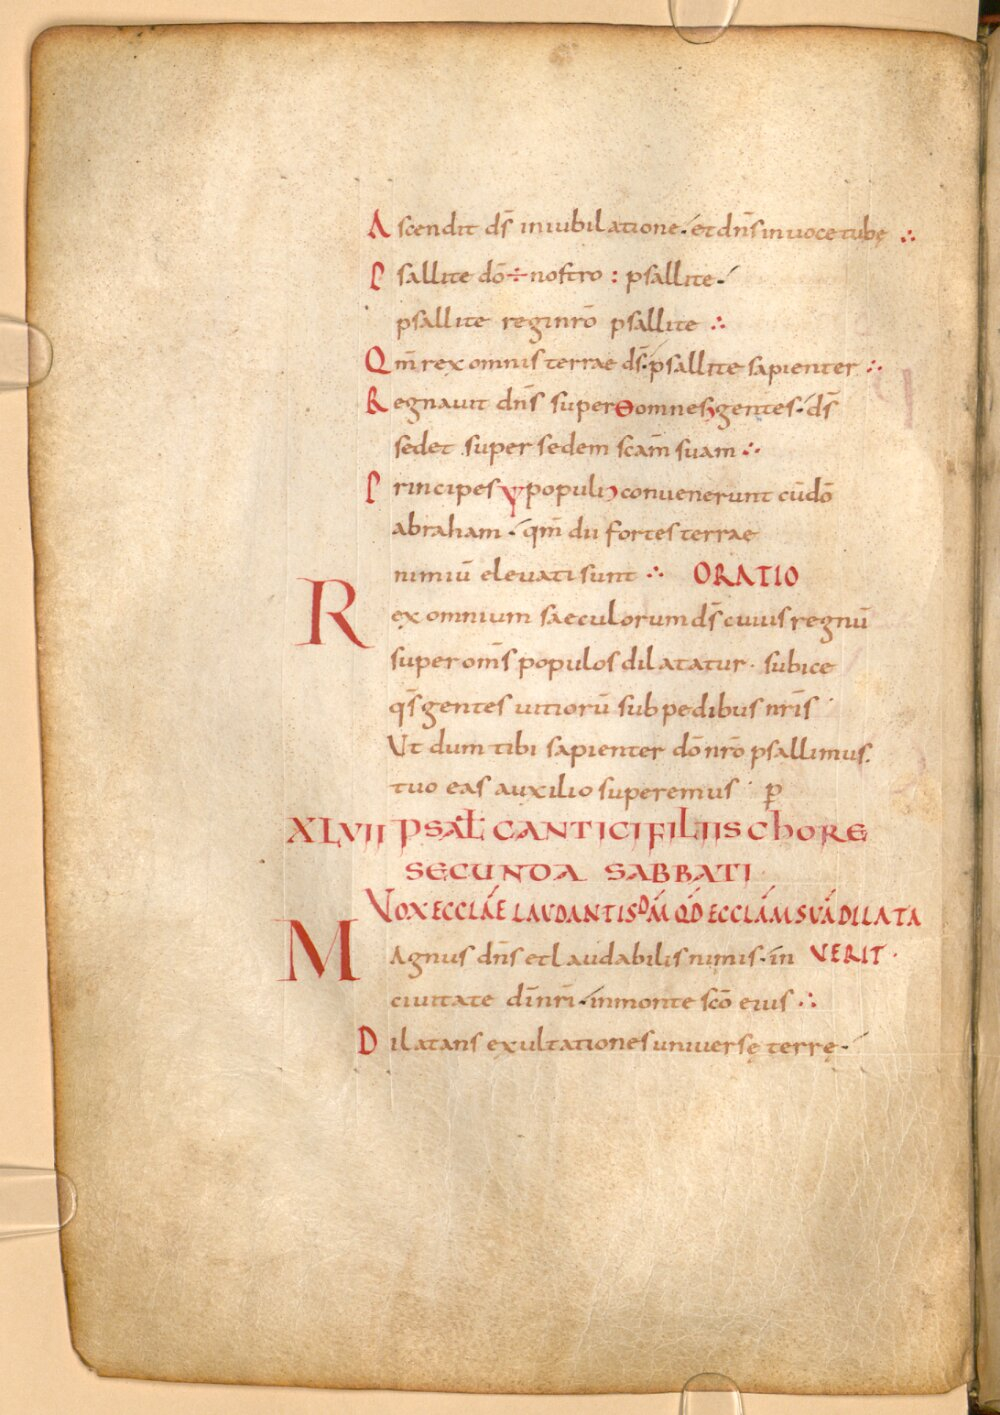 Ascendit ds̄ in iubilatione · et dn̄s in uoce tubę ∴
Psallite dō ÷ nostro : psallite ·
psallite regi nrō psallite ∴
Qm̄ rex omnis terrae ds̄ · psallite sapienter ∴
Regnauit dn̄s super omnes gentes · ds̄
sedet super sedem scam̄ suam ∴
Principes populi conuenerunt cū dō
abraham · qm̄ dii fortes terrae
nimiū eleuati sunt ∴ ORATIO
Rex omnium saeculorum ds̄ cuius regnū
super om̄s populos dilatatur · subice
qs̄ gentes uitiorū sub pedibus nr̄is
Ut dum tibi sapienter dō nrō psallimus.
tuo eas auxilio superemus · p̄
XLVII PSAL̄ CANTICI FILIIS CHORE
SECUNDA SABBATI
VOX ECCLAE LAUDANTIS DM̄ QD̄ ECCLAM SUĀ DILATA
Magnus dn̄s et laudabilis nimis · in VERIT ·
ciuitate dī nrī · in monte scō eius ∴
Dilatans exultationes uniuersę terrę ·